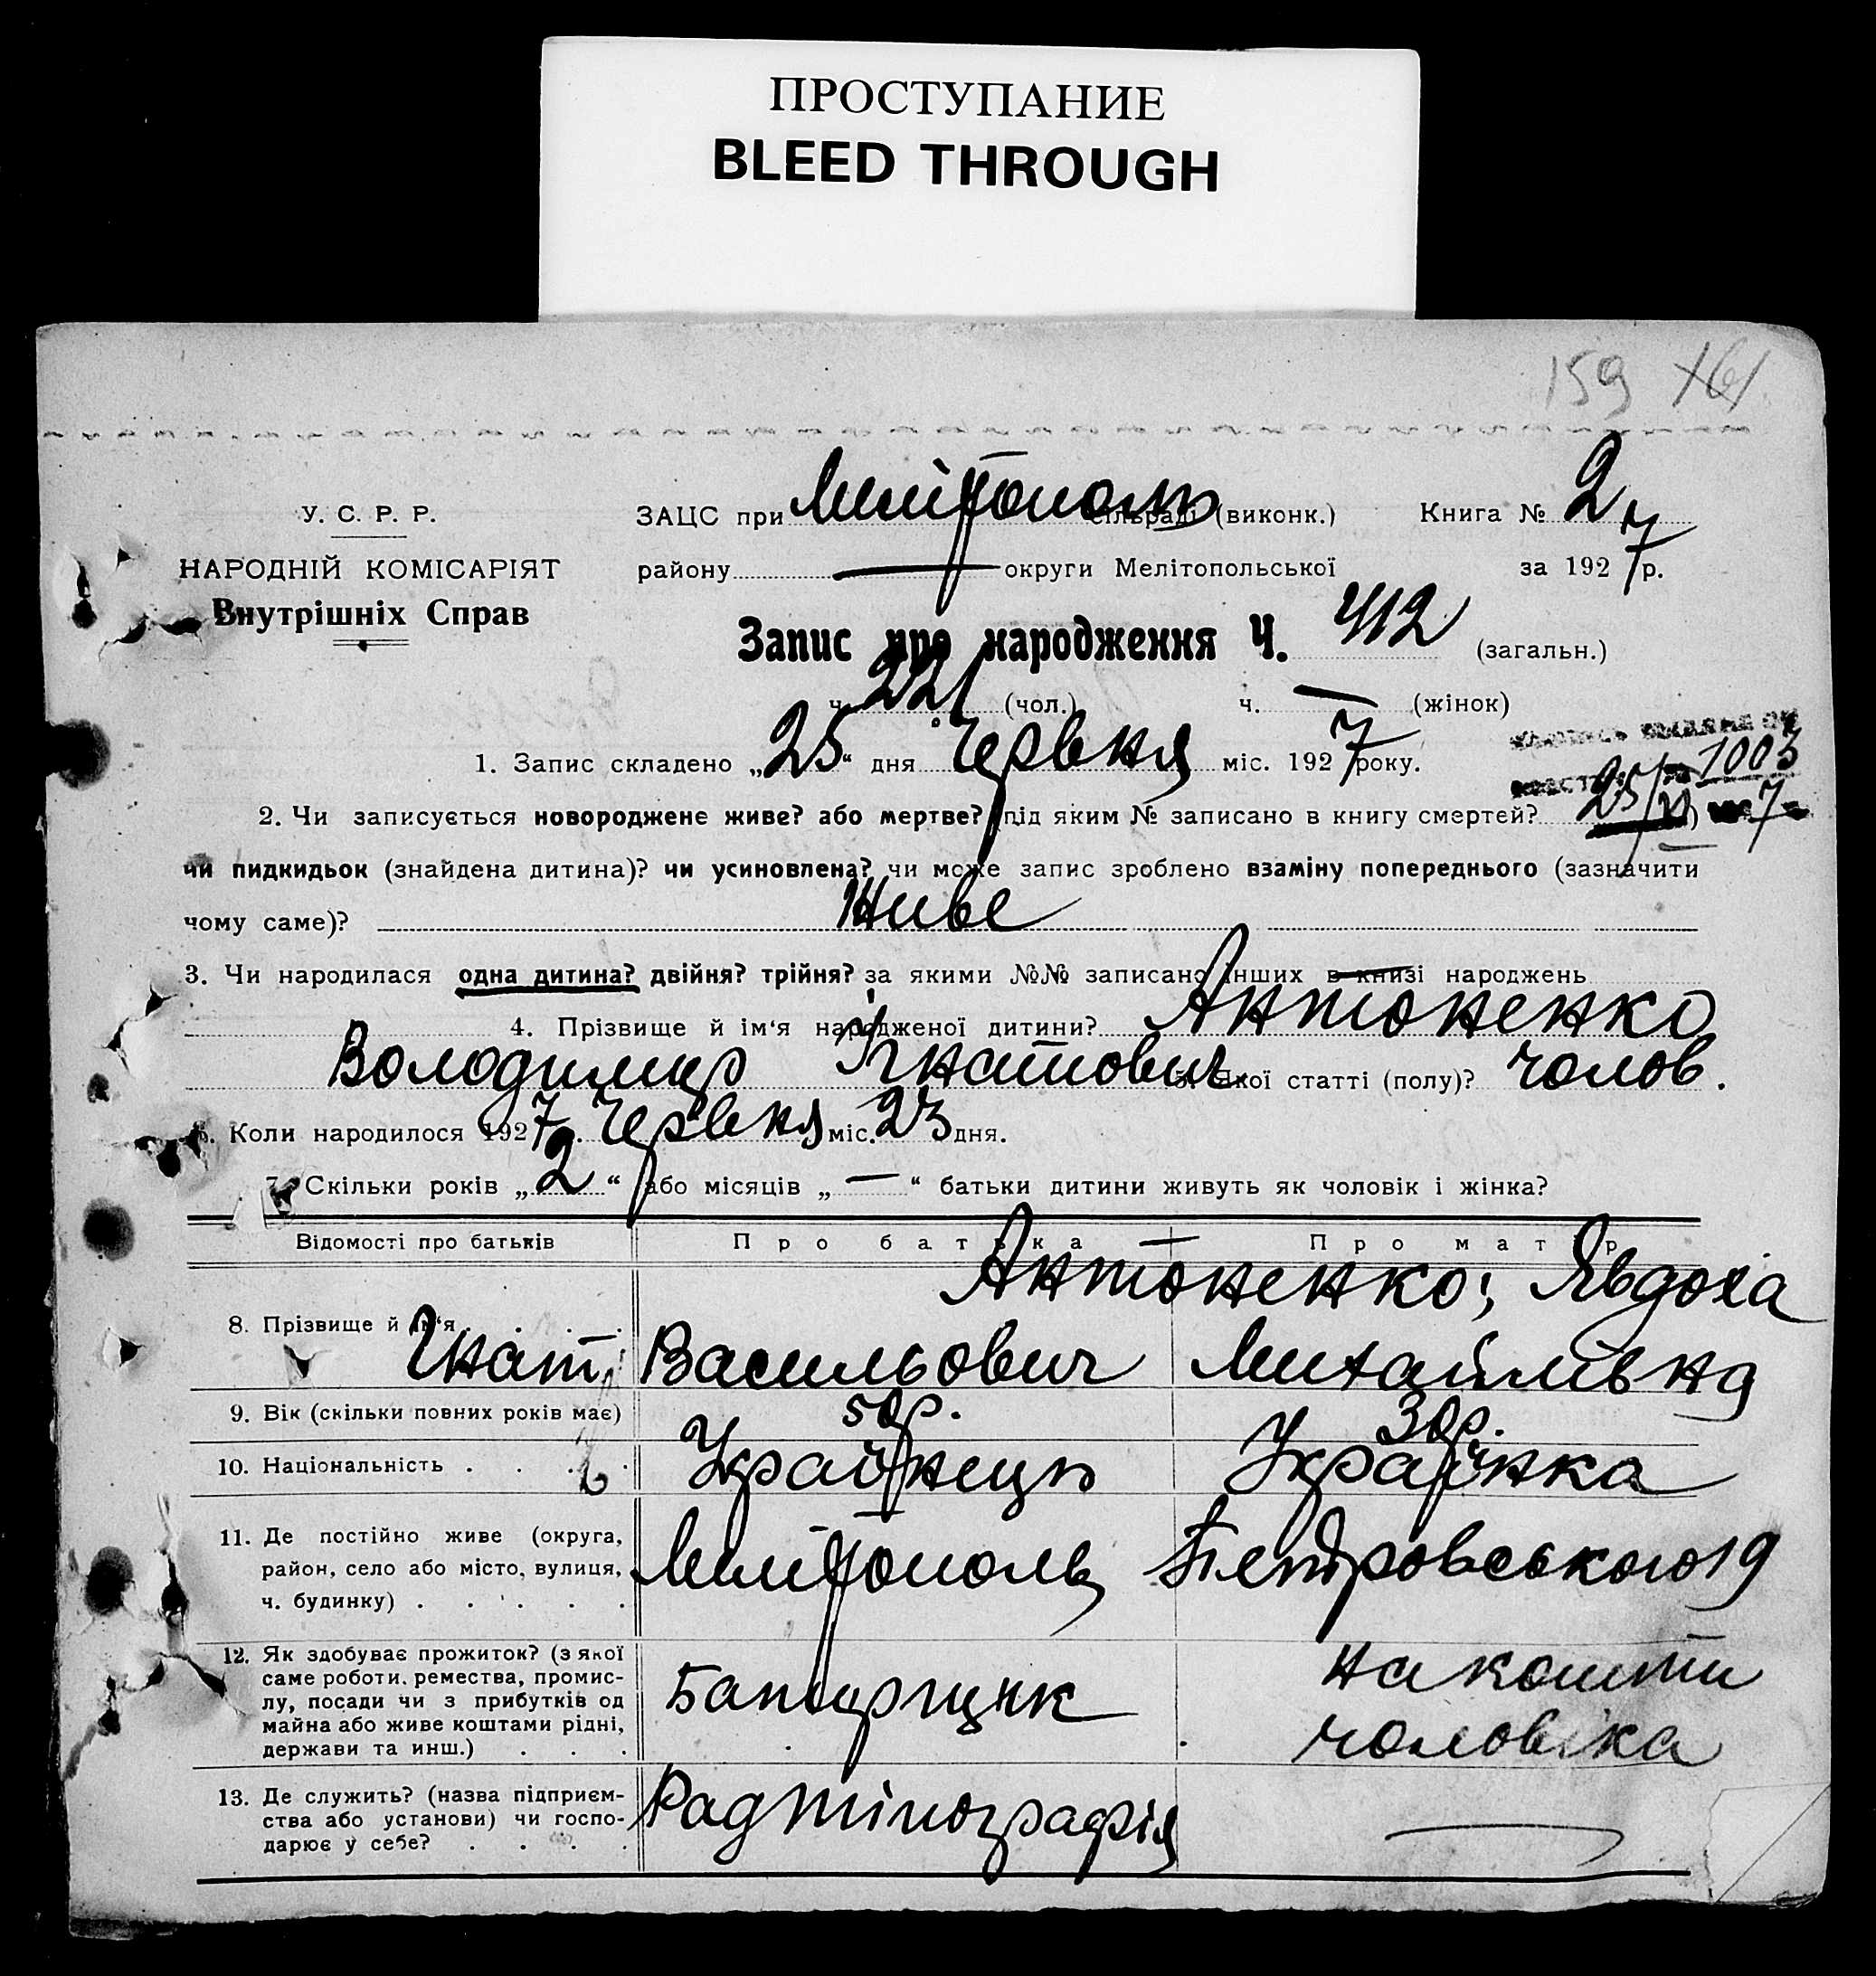 ПРОСТУПАНИЕ
BLEED THROUGH
159 161
У. С. Р. Р.
НАРОДНІЙ КОМІСАРІЯТ
Внутрішніх Справ
ЗАЦС при Мелітополь сільраді (виконк.) Книга № 2
району — округи Мелітопольської за 1927 р.
Запис про народження Ч. 412 (загальн.)
ч. 221 (чол.) ч. — (жінок)
1. Запис складено „25“ дня Червня міс. 1927 року.
1003
25/VI 7
2. Чи записується новороджене живе? або мертве? під яким № записано в книгу смертей?
чи пидкидьок (знайдена дитина)? чи усиновлена? чи може запис зроблено взаміну попереднього (зазначити
чому саме)? Живе
3. Чи народилася одна дитина? двійня? трійня? за якими №№ записано інших в книзі народжень —
4. Прізвище й ім'я народженої дитини? Антоненко
Володимир Ігнатович 5. Якої статті (полу)? чолов.
6. Коли народилося 1927 р. Червня міс. 23 дня.
7. Скільки років „2“ або місяців „—“ батьки дитини живуть як чоловік і жінка?
Відомості про батьків Про батька Про матір
Антоненко; Явдоха
8. Прізвище й ім'я
Гнат Васильович Михайлівна
9. Вік (скільки повних років має) 50р. 30р.
10. Національність Українець Українка
11. Де постійно живе (округа,
район, село або місто, вулиця,
ч. будинку) Мелітополь Петровського 19
12. Як здобуває прожиток? (з якої
саме роботи, ремества, промис-
лу, посади чи з прибутків од
майна або живе коштами рідні,
держави та инш.)
на кошти
чоловіка
13. Де служить? (назва підприєм-
ства або установи) чи госпо-
дарює у себе? Радтіпографія —